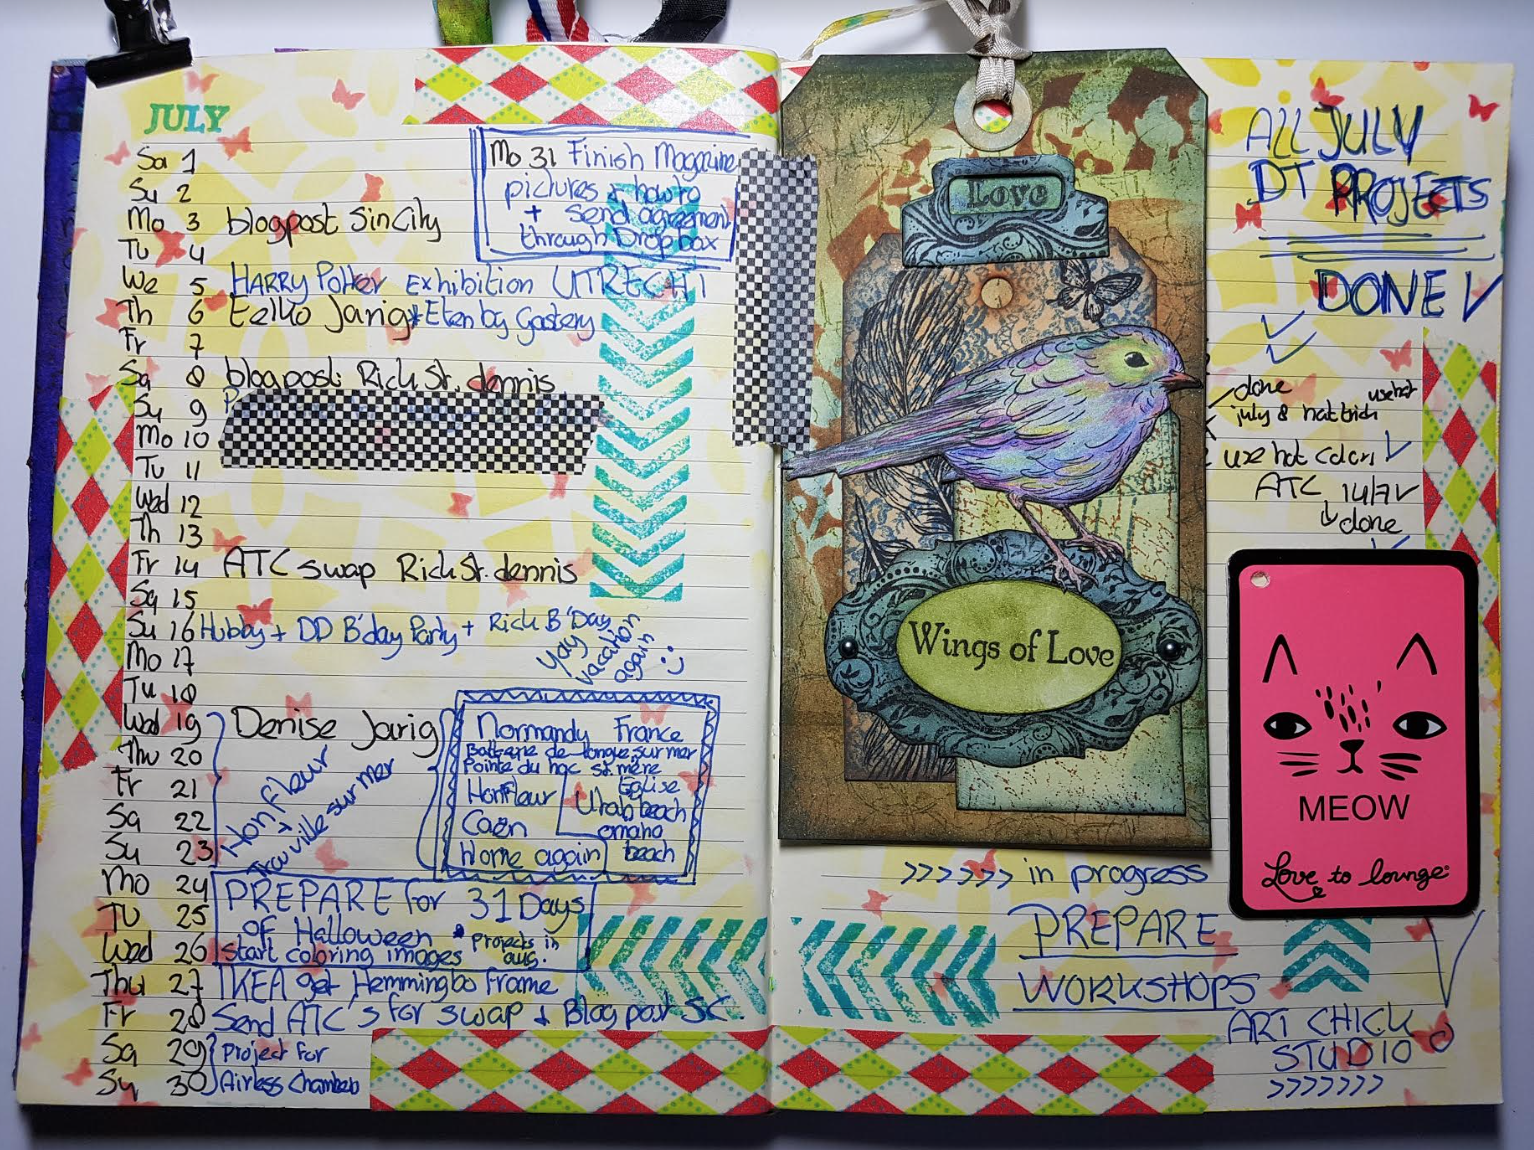 JULY
Sa 1
Su 2
Mo 3 blogpost SinCity
Tu 4
We 5 HARRY Potter Exhibition UTRECHT
Th 6 Eelko Jarig * Eten by Gastery
Fr 7
Sa 8 blogpost Rich St. dennis
Su 9
Mo 10
Tu 11
Wed 12
Th 13
Fr 14 ATC swap Rich St. dennis
Sa 15
Su 16 Hubby + DD B'day Party + Rich B'Day
Mo 17
Tu 18
Wed 19 Denise Jarig
Thu 20
Fr 21
Sa 22
Su 23
Honfleur
+
Trouville sur mer
Mo 24 PREPARE for 31 Days
Tu 25 of Halloween * Projects in
Wed 26 start coloring images aug.
Thu 27 IKEA get Hemmingbo Frame
Fr 28 Send ATC's for swap + Blogpost SC
Sa 29 Project for
Su 30 Airless Chambers
Mo 31 Finish Magazine
pictures + how to
+ send agreement
through Dropbox
Yay
vacation
again
:)
Normandy France
Batterie de longue sur mer
Pointe du hoc st. mère
Église
Honfleur
Utah beach
Caën
omaha
beach
Home again
Love
Wings of Love
ALL JULY
DT PROJECTS
DONE
done
use hot
july & hat
use hot colors
ATC 14/7
done
MEOW
Love to lounge
>>>>>> in progress
PREPARE
WORKSHOPS
ART CHICK
STUDIO
>>>>>>>